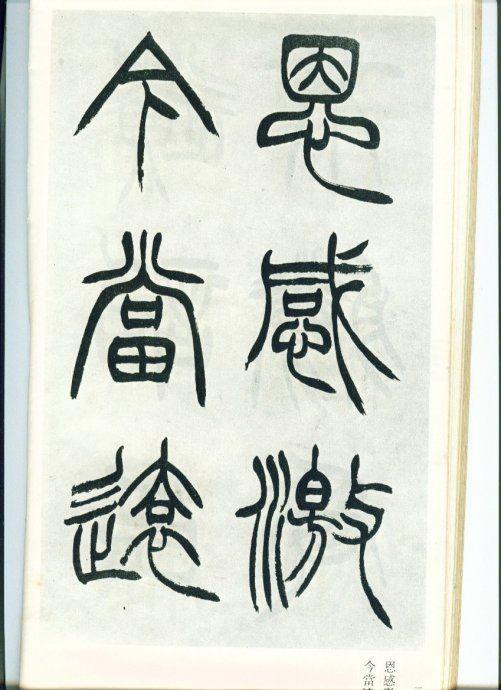 恩感激
今當遠
恩感
今當